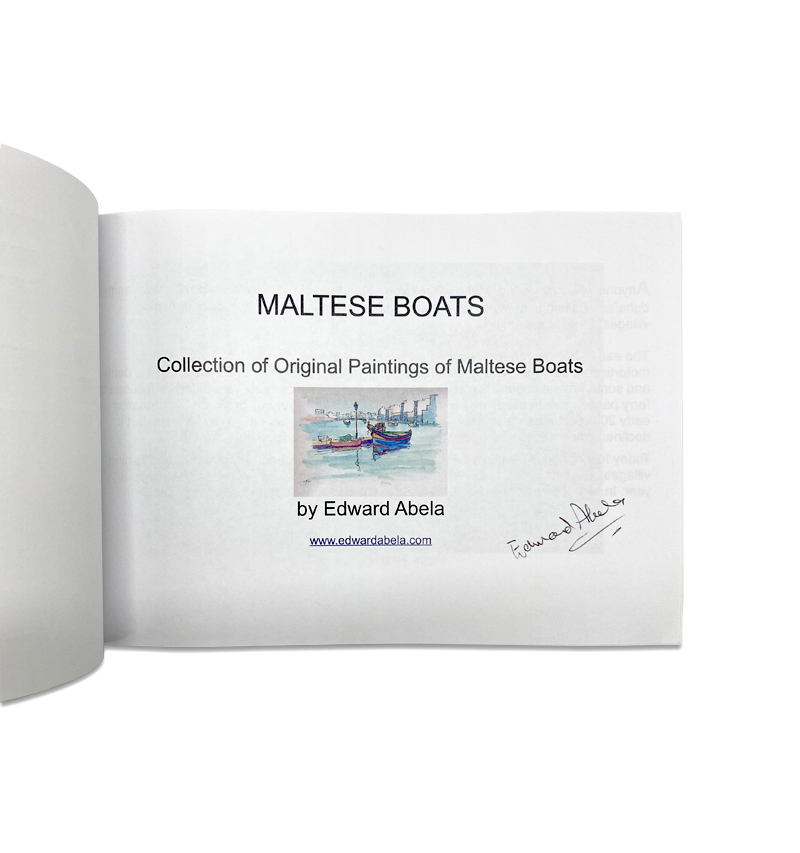 MALTESE BOATS
Collection of Original Paintings of Maltese Boats
by Edward Abela
www.edwardabela.com
Edward Abela